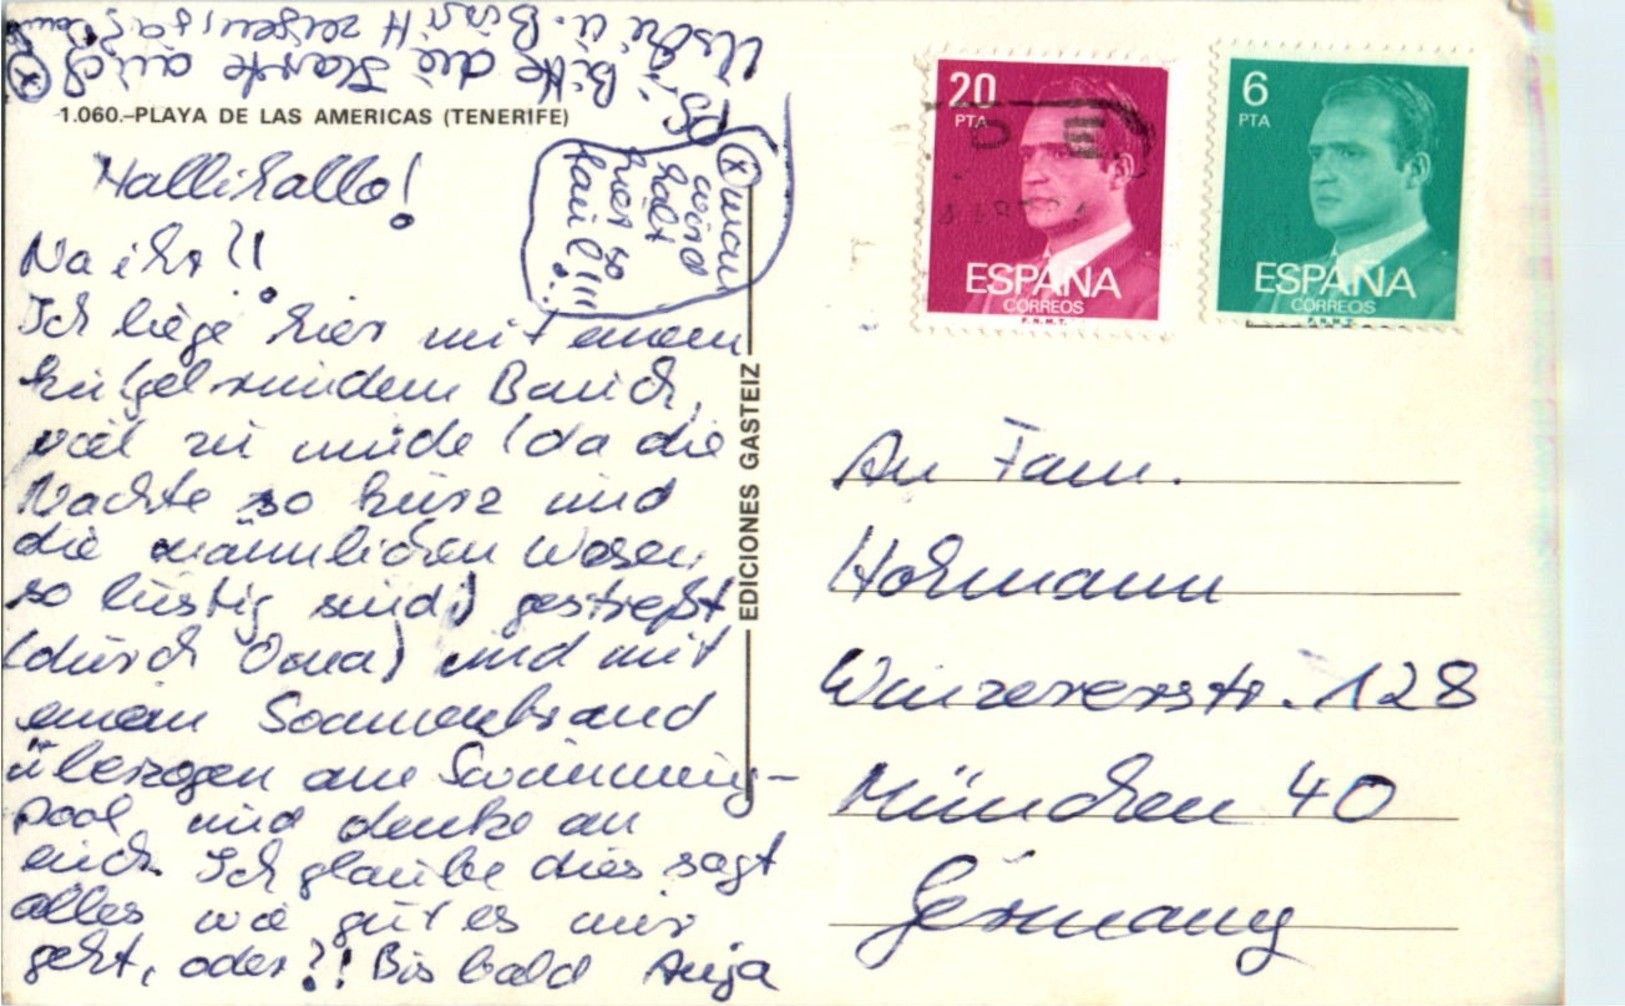 1.060.-PLAYA DE LAS AMERICAS (TENERIFE)
Hallihallo!
Na ihr?!
Ich liege hier mit einem
kugelrunden Bauch,
viel zu müde (da die
Nächte so kurz und
die männlichen Wesen
so lustig sind) gestreßt
(durch Oma) und mit
einem Sonnenbrand
überzogen am Swimming-
pool und denke an
euch. Ich glaube dies sagt
alles wie gut es mir
geht, oder?! Bis bald Anja
PS: Bitte die Karte auch (x)
Uschi u. Birgit zeigen, ja?
(x) man
wird
halt
hier so
faul!!!
EDICIONES GASTEIZ
20
PTA
ESPAÑA
CORREOS
F.N.M.T.
6
PTA
ESPAÑA
CORREOS
F.N.M.T.
An Fam.
Hohmann
Winzererstr. 128
München 40
Germany